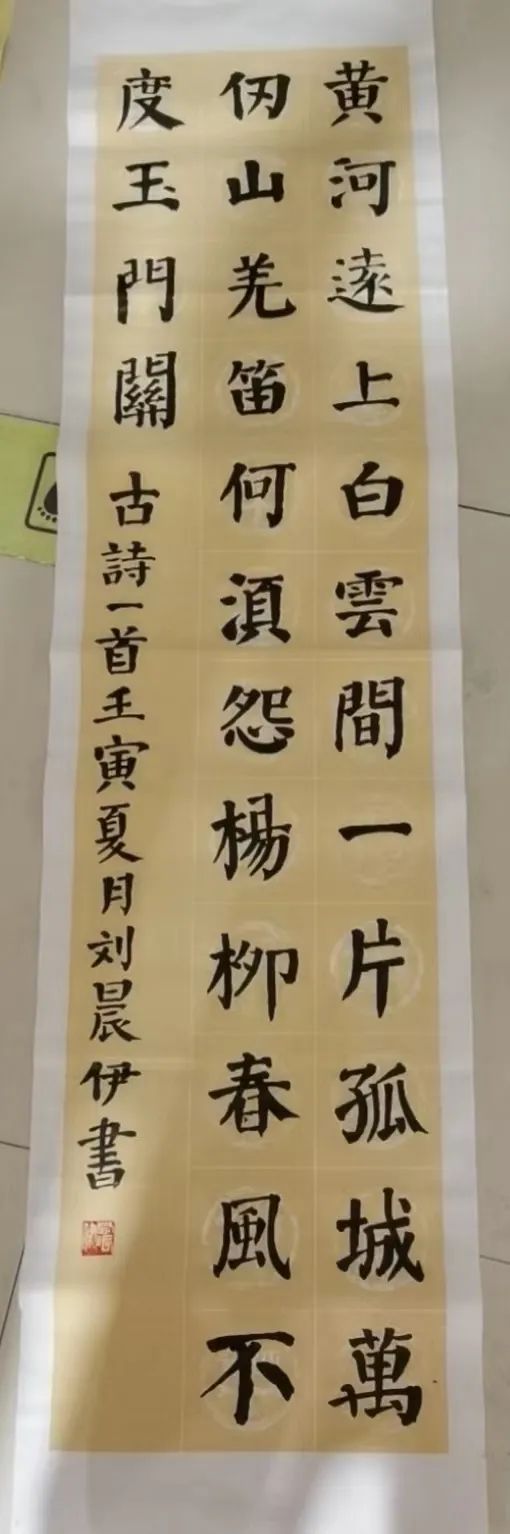 黄河逺上白雲間一片孤城萬
仞山羌笛何湏怨楊柳春風不
度玉門關
古詩一首王寅夏月刘晨伊書